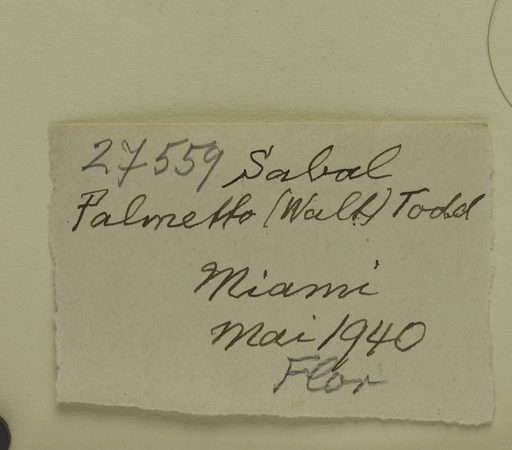 27559 Sabal
Palmetto (Walt) Todd
Miami
Mai 1940
Flor